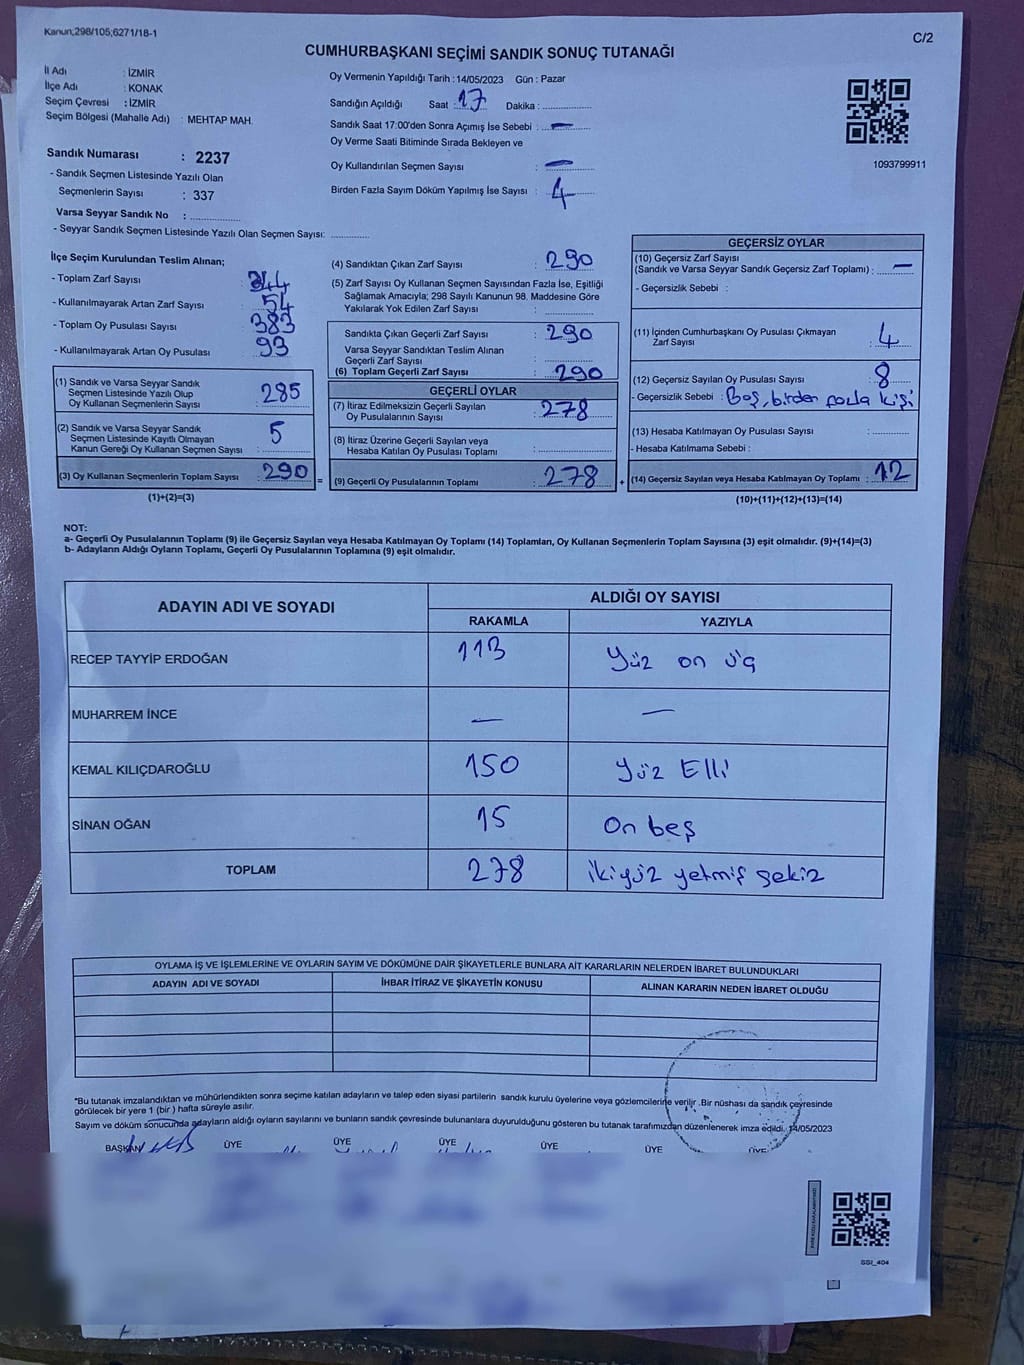 Kanun;298/105;6271/18-1
C/2
CUMHURBAŞKANI SEÇİMİ SANDIK SONUÇ TUTANAĞI
İl Adı : İZMİR
İlçe Adı : KONAK
Seçim Çevresi : İZMİR
Seçim Bölgesi (Mahalle Adı) : MEHTAP MAH.
Sandık Numarası : 2237
- Sandık Seçmen Listesinde Yazılı Olan
Seçmenlerin Sayısı : 337
Varsa Seyyar Sandık No :
- Seyyar Sandık Seçmen Listesinde Yazılı Olan Seçmen Sayısı:
Oy Vermenin Yapıldığı Tarih : 14/05/2023 Gün : Pazar
Sandığın Açıldığı Saat : 17 Dakika :
Sandık Saat 17:00'den Sonra Açımış İse Sebebi : —
Oy Verme Saati Bitiminde Sırada Bekleyen ve
Oy Kullandırılan Seçmen Sayısı : —
Birden Fazla Sayım Döküm Yapılmış İse Sayısı : 4
1093799911
İlçe Seçim Kurulundan Teslim Alınan;
- Toplam Zarf Sayısı : 344
- Kullanılmayarak Artan Zarf Sayısı : 54
- Toplam Oy Pusulası Sayısı : 383
- Kullanılmayarak Artan Oy Pusulası : 93
(1) Sandık ve Varsa Seyyar Sandık
Seçmen Listesinde Yazılı Olup
Oy Kullanan Seçmenlerin Sayısı : 285
(2) Sandık ve Varsa Seyyar Sandık
Seçmen Listesinde Kayıtlı Olmayan
Kanun Gereği Oy Kullanan Seçmen Sayısı : 5
(3) Oy Kullanan Seçmenlerin Toplam Sayısı : 290
(1)+(2)=(3)
(4) Sandıktan Çıkan Zarf Sayısı : 290
(5) Zarf Sayısı Oy Kullanan Seçmen Sayısından Fazla İse, Eşitliği
Sağlamak Amacıyla; 298 Sayılı Kanunun 98. Maddesine Göre
Yakılarak Yok Edilen Zarf Sayısı :
Sandıkta Çıkan Geçerli Zarf Sayısı : 290
Varsa Seyyar Sandıktan Teslim Alınan
Geçerli Zarf Sayısı :
(6) Toplam Geçerli Zarf Sayısı : 290
GEÇERLİ OYLAR
(7) İtiraz Edilmeksizin Geçerli Sayılan
Oy Pusulalarının Sayısı : 278
(8) İtiraz Üzerine Geçerli Sayılan veya
Hesaba Katılan Oy Pusulası Toplamı :
(9) Geçerli Oy Pusulalarının Toplamı : 278
GEÇERSİZ OYLAR
(10) Geçersiz Zarf Sayısı
(Sandık ve Varsa Seyyar Sandık Geçersiz Zarf Toplamı) : —
- Geçersizlik Sebebi :
(11) İçinden Cumhurbaşkanı Oy Pusulası Çıkmayan
Zarf Sayısı : 4
(12) Geçersiz Sayılan Oy Pusulası Sayısı : 8
- Geçersizlik Sebebi : Boş, birden fazla kişi
(13) Hesaba Katılmayan Oy Pusulası Sayısı :
- Hesaba Katılmama Sebebi :
(14) Geçersiz Sayılan veya Hesaba Katılmayan Oy Toplamı : 12
(10)+(11)+(12)+(13)=(14)
NOT:
a- Geçerli Oy Pusulalarının Toplamı (9) ile Geçersiz Sayılan veya Hesaba Katılmayan Oy Toplamı (14) Toplamları, Oy Kullanan Seçmenlerin Toplam Sayısına (3) eşit olmalıdır. (9)+(14)=(3)
b- Adayların Aldığı Oyların Toplamı, Geçerli Oy Pusulalarının Toplamına (9) eşit olmalıdır.
ADAYIN ADI VE SOYADI
ALDIĞI OY SAYISI
RAKAMLA YAZIYLA
RECEP TAYYİP ERDOĞAN 113 Yüz on üç
MUHARREM İNCE — —
KEMAL KILIÇDAROĞLU 150 Yüz Elli
SİNAN OĞAN 15 On beş
TOPLAM 278 ikiyüz yetmiş sekiz
OYLAMA İŞ VE İŞLEMLERİNE VE OYLARIN SAYIM VE DÖKÜMÜNE DAİR ŞİKAYETLERLE BUNLARA AİT KARARLARIN NELERDEN İBARET BULUNDUKLARI
ADAYIN ADI VE SOYADI İHBAR İTİRAZ VE ŞİKAYETİN KONUSU ALINAN KARARIN NEDEN İBARET OLDUĞU
*Bu tutanak imzalandıktan ve mühürlendikten sonra seçime katılan adayların ve talep eden siyasi partilerin sandık kurulu üyelerine veya gözlemcilerine verilir .Bir nüshası da sandık çevresinde
görülecek bir yere 1 (bir ) hafta süreyle asılır.
Sayım ve döküm sonucunda adayların aldığı oyların sayılarını ve bunların sandık çevresinde bulunanlara duyurulduğunu gösteren bu tutanak tarafımızdan düzenlenerek imza edildi. 14/05/2023
BAŞKAN ÜYE ÜYE ÜYE ÜYE ÜYE ÜYE
SSI_404